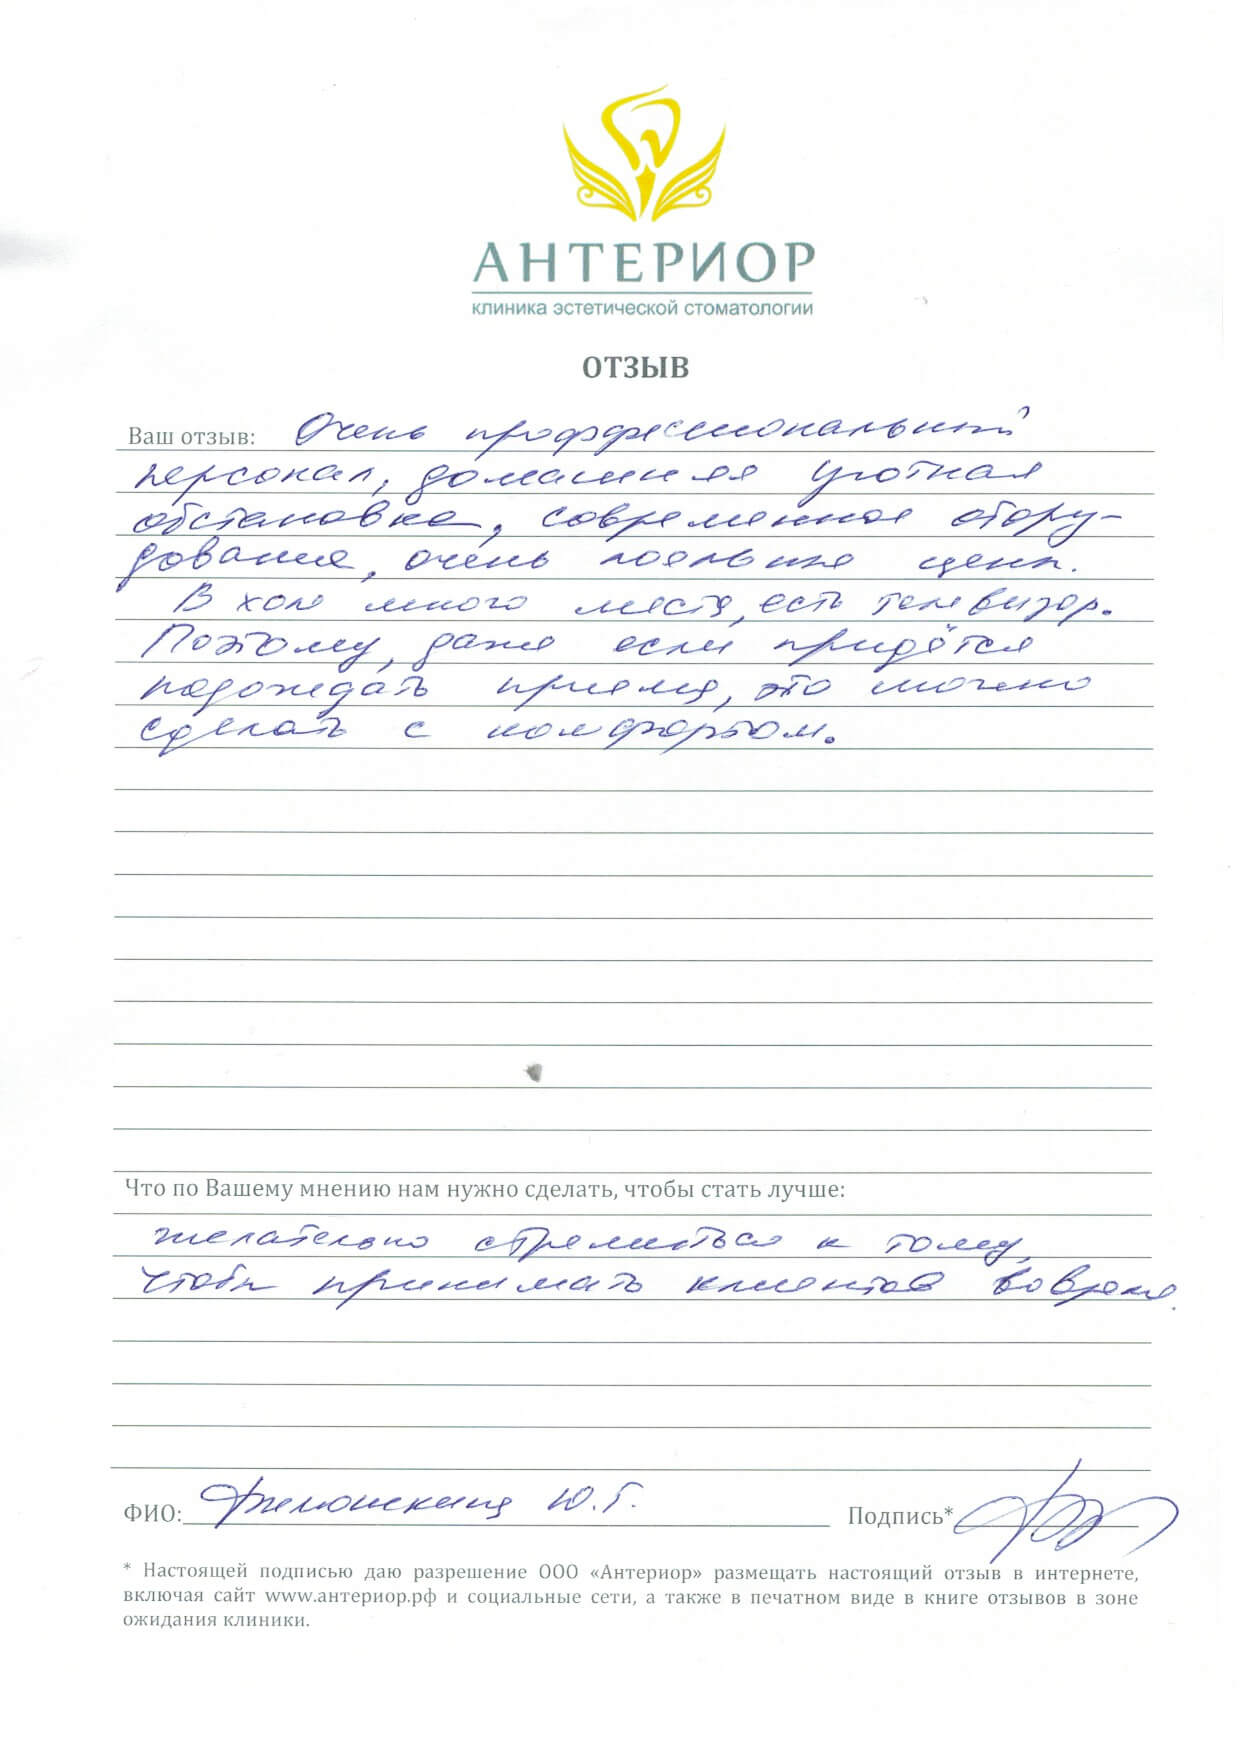 АНТЕРИОР
клиника эстетической стоматологии
ОТЗЫВ
Ваш отзыв: Очень проффессиональный
персонал, домашняя уютная
обстановка, современное обору-
дование, очень лояльные цены.
В холе много места, есть телевизор.
Поэтому, даже если придётся
подождать приема, это можно
сделать с комфортом.
Что по Вашему мнению нам нужно сделать, чтобы стать лучше:
желательно стремиться к тому,
чтобы принимать клиентов вовремя.
ФИО: Ю.Г. Подпись*
* Настоящей подписью даю разрешение ООО «Антериор» размещать настоящий отзыв в интернете,
включая сайт www.антериор.рф и социальные сети, а также в печатном виде в книге отзывов в зоне
ожидания клиники.